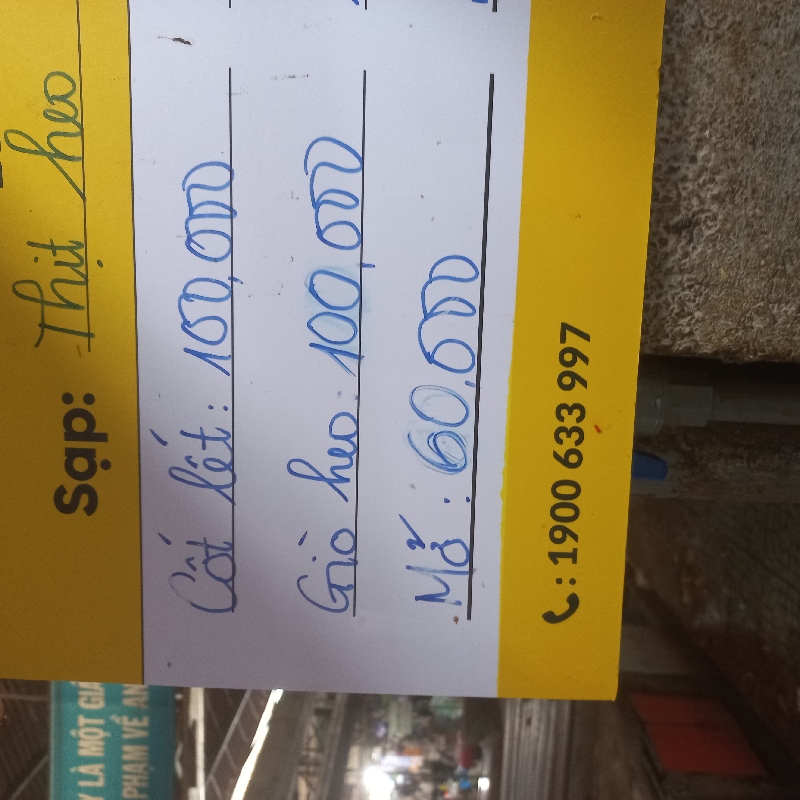 Y LÀ MỘT GIÁ
PHẠM VỀ AN
Sạp: Thịt heo
Cốt lết: 100,000
Giò heo: 100,000
Mỡ: 60,000
: 1900 633 997